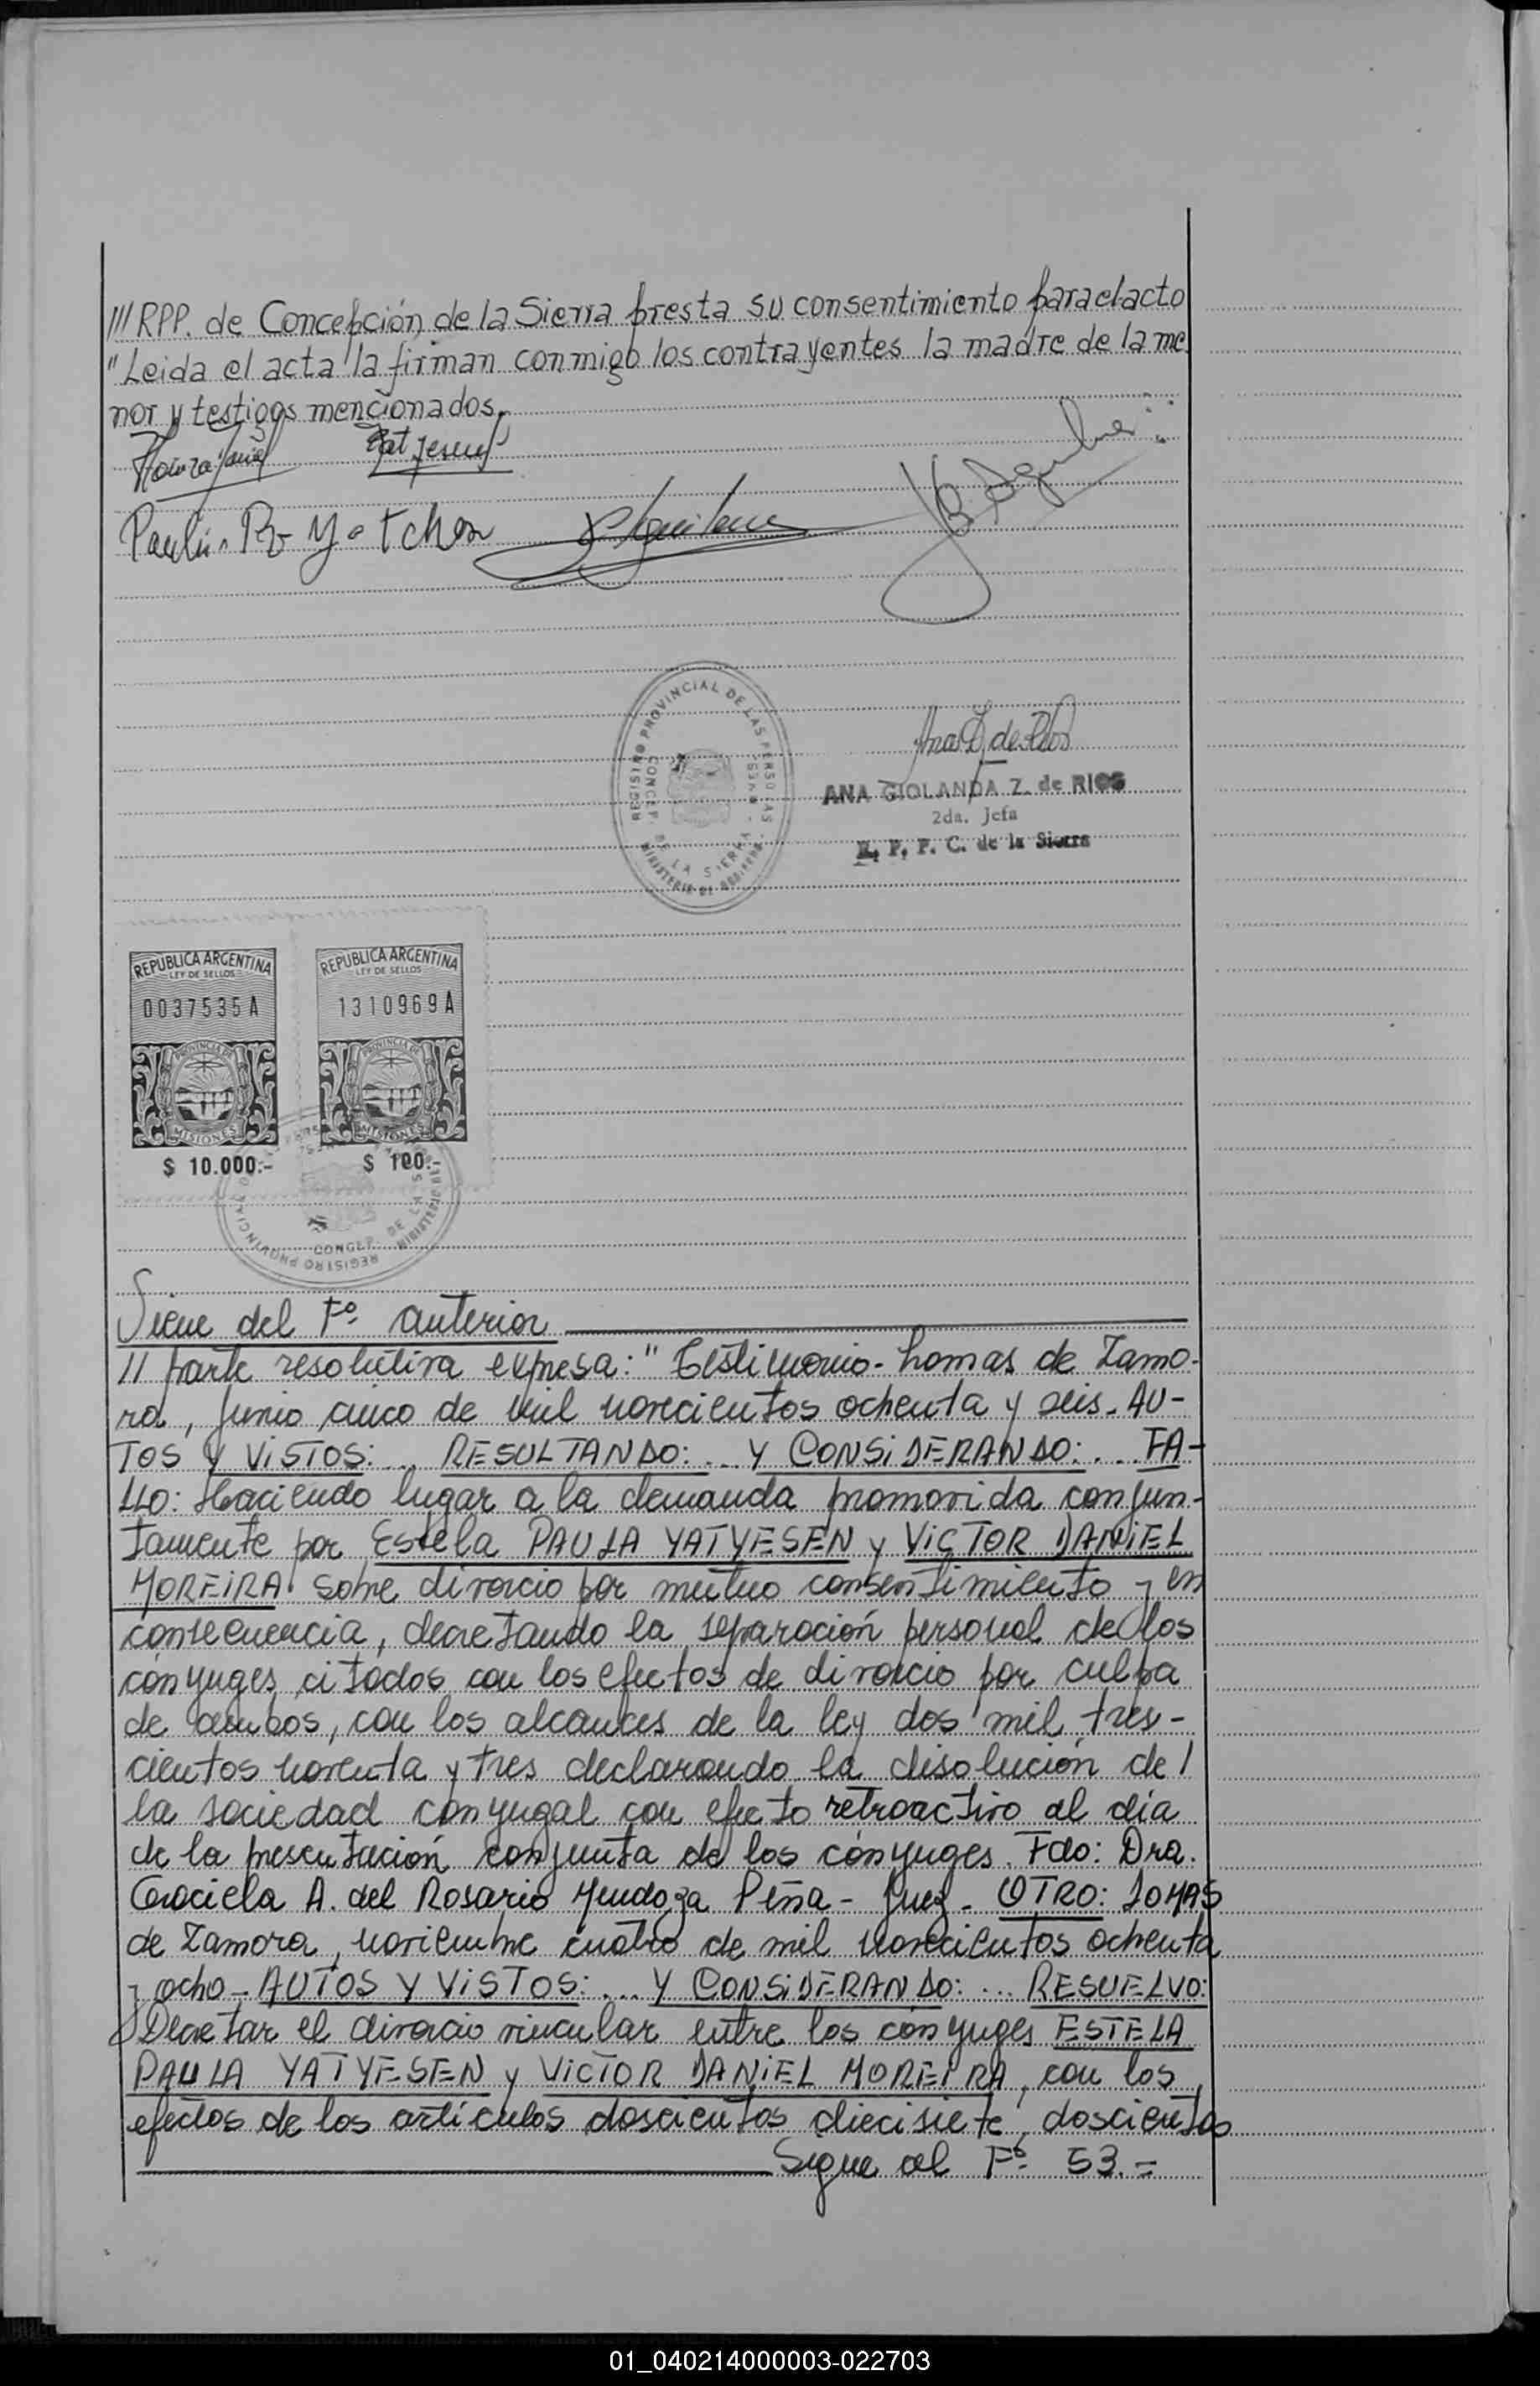 /// RPP. de Concepción, de la Sierra presta su consentimiento para el acto
"Leida el acta la firman conmigo los contrayentes la madre de la me
nor y testigos mencionados.
REGISTRO PROVINCIAL DE LAS PERSONAS
CONCEP. DE LA SIERRA
ANA GIOLANDA Z. de RIOS
2da. Jefa
R. P. P. C. de la Sierra
REPUBLICA ARGENTINA
LEY DE SELLOS
0037535A
PROVINCIA DE
MISIONES
$ 10.000.-
REPUBLICA ARGENTINA
LEY DE SELLOS
1310969A
PROVINCIA DE
MISIONES
$ 100.-
REGISTRO PROVINCIAL
CONCEP. DE LA S
MINISTERIO
Viene del Fº anterior
// parte resolutiva expresa: "Testimonio- Lomas de Zamo-
ra, Junio cinco de mil novecientos ochenta y seis. AU-
TOS Y VISTOS: ... RESULTANDO: ... Y CONSIDERANDO: ... FA-
LLO: Haciendo lugar a la demanda promovida conjun-
tamente por Estela PAULA YATYESEN y VICTOR DANIEL
MOREIRA sobre divorcio por mutuo consentimiento y en
consecuencia, decretando la separación personal de los
cónyuges citados con los efectos de divorcio por culpa
de ambos, con los alcances de la ley dos mil tres-
cientos noventa y tres declarando la disolución de /
la sociedad conyugal con efecto retroactivo al día
de la presentación conjunta de los cónyuges. Fdo: Dra.
Graciela A. del Rosario Mendoza Peña - Juez - OTRO: LOMAS
de Zamora, noviembre cuatro de mil novecientos ochenta
y ocho - AUTOS Y VISTOS: ... Y CONSIDERANDO: ... RESUELVO:
Decretar el divorcio vincular entre los cónyuges ESTELA
PAULA YATYESEN y VICTOR DANIEL MOREIRA, con los
efectos de los artículos doscientos diecisiete, doscientos
Sigue al Fº 53.=
01_040214000003-022703